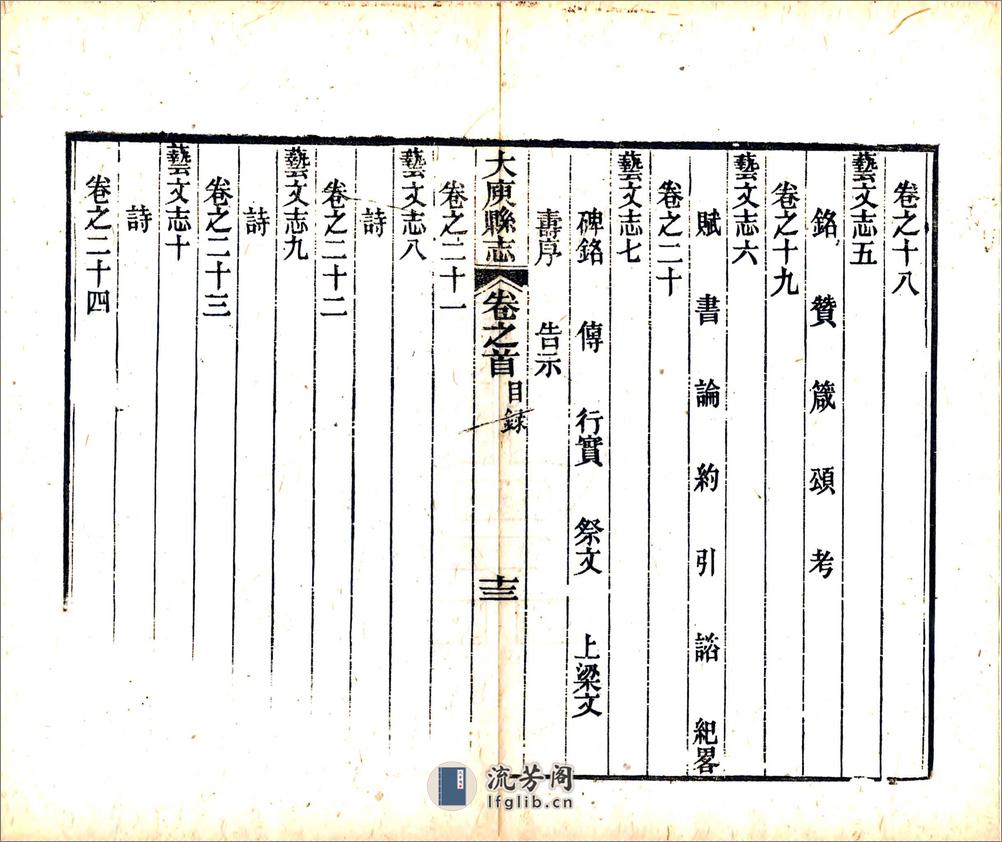 卷之十八
藝文志五
銘 贊 箴 頌 考
卷之十九
藝文志六
賦 書 論 約 引 謟 紀畧
卷之二十
藝文志七
碑銘 傳 行實 祭文 上梁文
壽序 告示
大庾縣志 卷之首 目錄 十三
卷之二十一
藝文志八
詩
卷之二十二
藝文志九
詩
卷之二十三
藝文志十
詩
卷之二十四
流芳阁
lfglib.cn